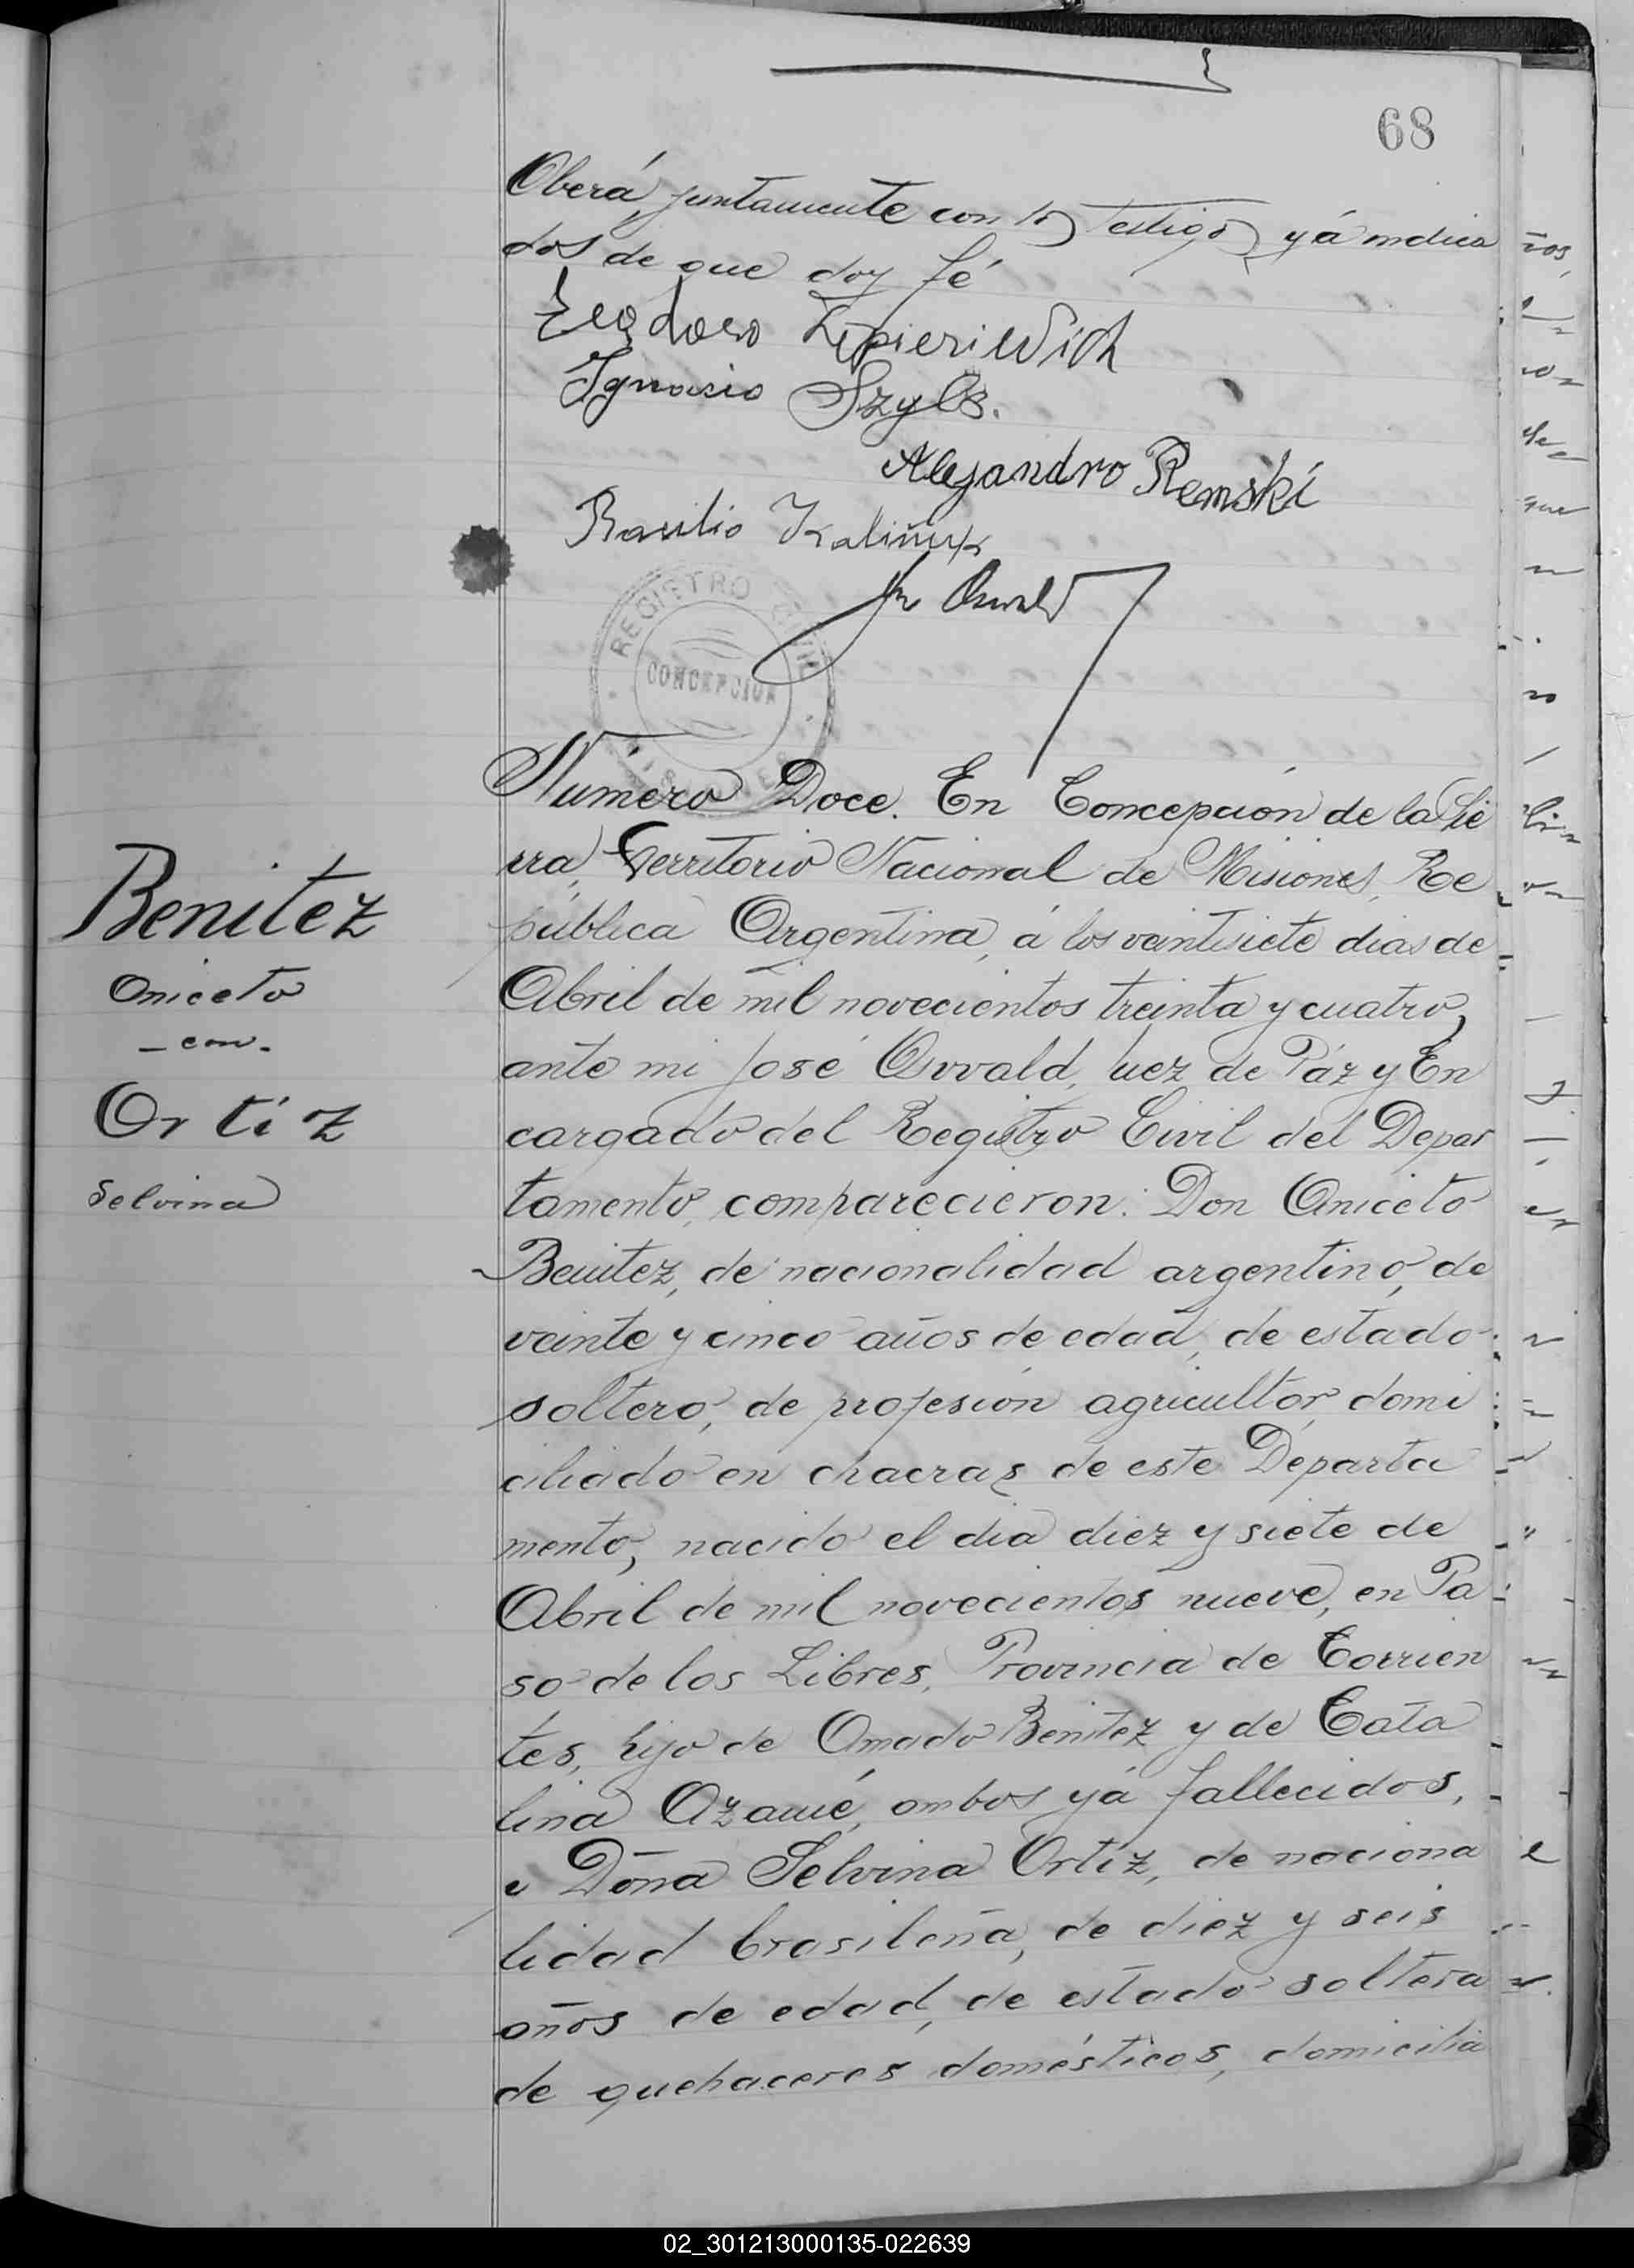 68
Oberá, juntamente con los testigos yá indica
dos de que doy fé
Teodoro
Ignasio
Alejandro Remski
Basilio Kaliñuk
José Oswald
REGISTRO CIVIL
CONCEPCION
MISIONES
Número Doce. En Concepción de la Sie
rra, Territorio Nacional de Misiones, Re
pública Argentina, á los veintisiete dias de
Abril de mil novecientos treinta y cuatro,
ante mi José Oswald, Juez de Páz y En
cargado del Registro Civil del Depar
tamento, comparecieron: Don Aniceto
Benitez, de nacionalidad argentino, de
veinte y cinco años de edad, de estado
soltero, de profesión agricultor, domi
ciliado en chacras de este Departa
mento, nacido el dia diez y siete de
Abril de mil novecientos nueve, en Pa
so de los Libres, Provincia de Corrien
tes, hijo de Amado Benitez y de Cata
lina ambos yá fallecidos,
y Doña Selvina Ortiz, de naciona
lidad brasileña, de diez y seis
años de edad, de estado soltera
de quehaceres domésticos, domicilia
Benitez
Aniceto
- con -
Ortiz
Selvina
02_301213000135-022639